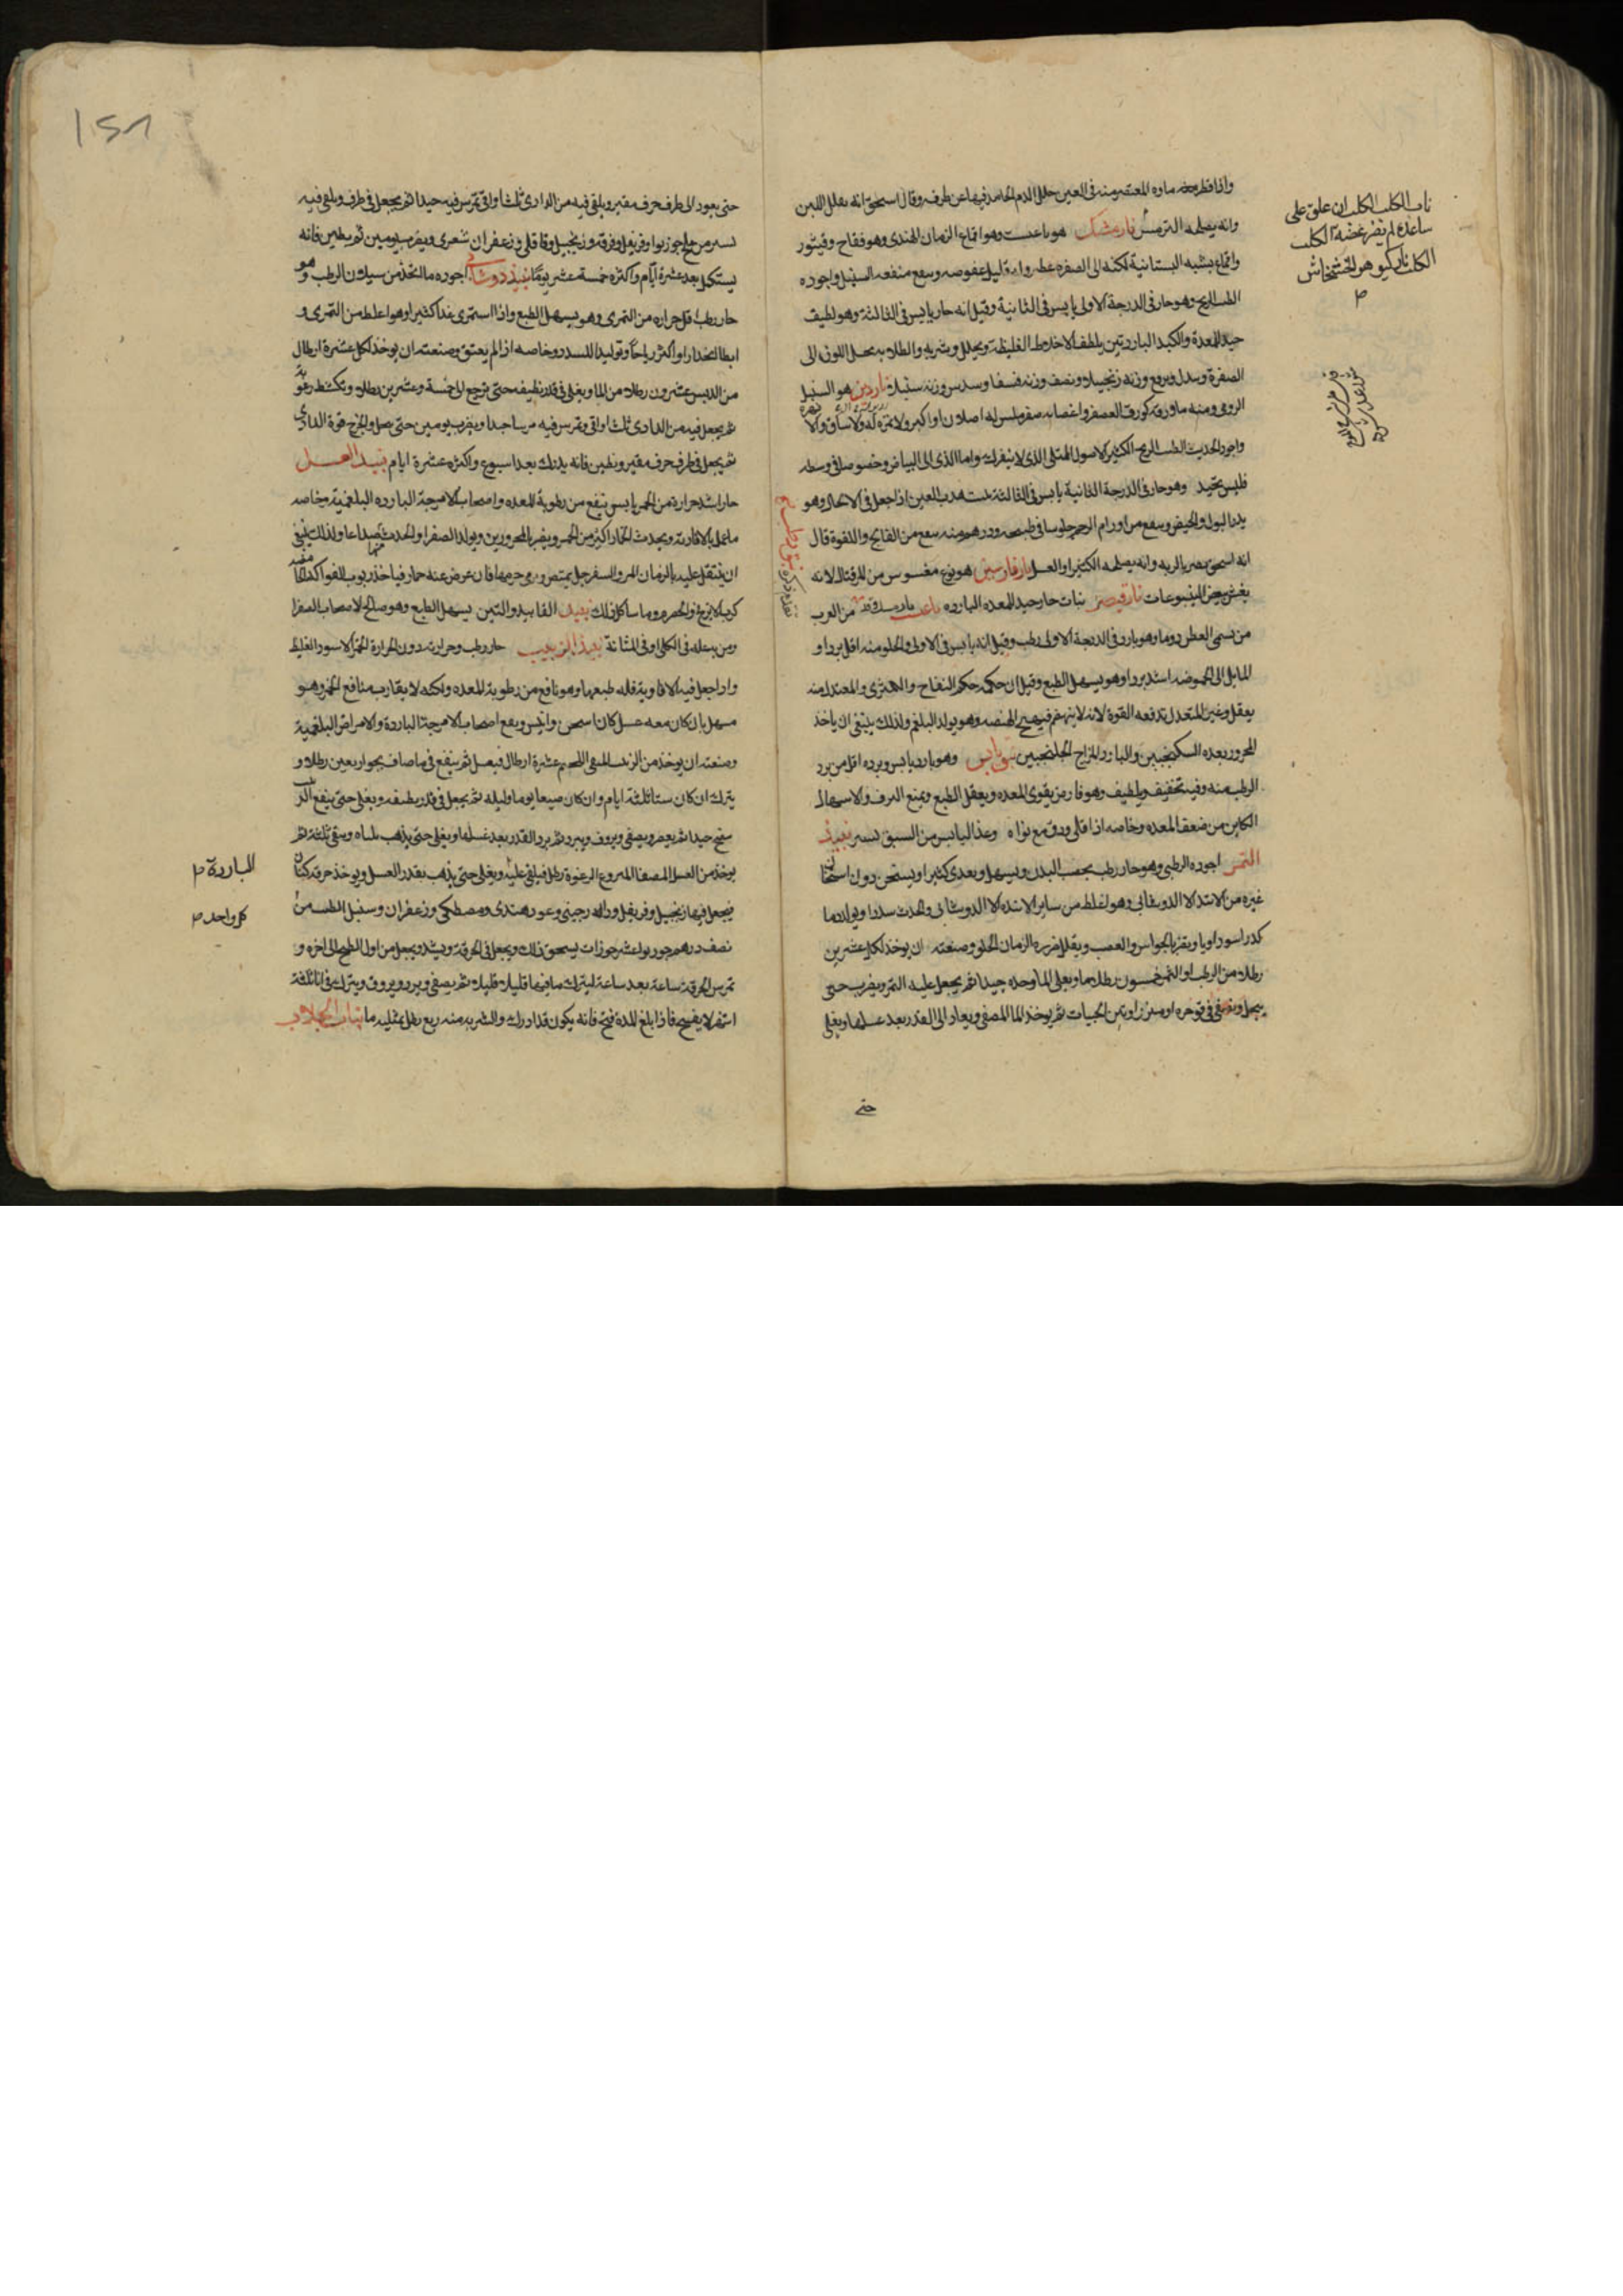 واذا قطر ماوه المعتصر منه فى العين حلل الدم الجامد فيها عن طرفه وقال اسحق انه يقلل اللبن
وانه يصلحه الترمس نارمشك هو وهو اقماع الرمان الهندى وهو فقاح وقشور
واقماع يشبه البستانية لكنه الى الصفره عطر قليل عفوصه منفعه السنبل واجوده
الطيب الريح وهو حار فى الدرجة الاولى يابس فى الثانية وقيل انه حار يابس فى الثالثة وهو لطيف
جيد للمعدة والكبد الباردتين يلطف الاخلاط الغليظة ويحلل وشربه والطلا به يحيل اللون الى
الصفرة وزنه زنجبيلا ونصف وزنه فستقا وسدس وزنه سنبلا ناردين هو السنبل
الرومى ومنه ما ورقه كورق العصفر واغصانه صفر ملس له اصلان او اكبر ولا ثمرة له ولا ساق ولا
واجود الحديث الطيب الريح الكثير الاصول الممتلى الذى لا ينفرك واما الذى الى البياض وخصوصا فى وسطه
فليس بجيد وهو حار فى الدرجة الثانية يابس فى الثالثة هدب العين اذا جعل فى الاكحال وهو
يدر البول والحيض وينفع من اورام الرحم جلوسا فى طبيخه ودرهم منه ينفع من الفالج واللقوة قال
انه اسحق يضر بالريه وانه يصلحه الكثيرا والعسل نارفارسين هو نوع مغسوس من الاه لانه
يغش ببعض اليتوعات نارقيصر نبات حار جيد للمعده البارده من العرب
من يسمى العطن دوما وهو بارد فى الدرجة الاولى رطب وقيل انه يابس فى الاولى والحلو منه اقل بردا و
المايل الى الحموضه اشد بردا وهو يسهل الطبع وقيل ان حكمه حكم التفاح والكمثرى والمعتدل منه
يعقل وغير المتعدل تدفعه القوة لانه لا ينهضم فيهيج الهيضه وهو يولد البلغم ولذلك ينبغى ان ياخذ
المحرور بعده السكنجبين والبارد المزاج الجلنجبين نبق يابس وهو بارد يابس وبرده اقل من برد
الرطب منه وفيه تخفيف وتلطيف وهو قابض يقوى المعده ويعقل الطبع ويمنع النزف والاسهال
الكاين من ضعف المعده وخاصه اذا قلى ودق مع نواه وغذا اليابس من النبق يسير نبيذ
التمر اجوده الرطبى وهو حار رطب يخصب البدن ويسهل ويغذى كثيرا ويسخن دون اسخان
غيره من الانبذة الا الدوشابى وهو اغلظ من ساير الانبذه الا الدوشابى ويحدث سددا ويولد دما
كدرا سوداويا ويضر بالحواس والعصب ويقلل ضرره الرمان الحلو وصنعته ان يوخذ لكل عشرين
رطلا من الرطب او التمر خمسون رطلا ما ويغلى الما وحده جيدا ثم يجعل عليه التمر ويضرب حتى
ينحل ويصفى فى قوصره او سنزاويه من الحبيات ثم يوخذ الما المصفى ويعاد الى القدر بعد غسلها ويغلى
حتى
ناب الكلب الكلب ان علق على
ساعد لم يضر عضة الكلب
الكلب ناركيو هو الخشخاش
١٤٨
حتى يعود الى ظرف خزف مقير ويلقى فيه من الدادى ثلث اواق تمرس فيه جيدا ثم يجعل فى ظرف ويلقى فيه
يسير من جوزبوا وقرنفل وقرفه وزنجبيل وقاقلى وزعفران شعرى ويضرب يومين ثم يطين فانه
يستكمل بعد عشرة ايام واكثره خمسة عشر يوما نبيذ دوشابى اجوده ما اتخذ من سيلان الرطب وهو
حار رطب اقل حراره من التمرى وهو يسهل الطبع واذا استمرى غذا كثيرا وهو اغلظ من التمرى و
ابطا انحدارا واكثر رياحا وتوليدا للسدد وخاصه اذا لم يعتق وصنعته ان يوخذ لكل عشرة ارطال
من الدبس عشرون رطلا من الما ويغلى فى قدر نظيفه حتى يرجع الى خمسة وعشرين رطلا وتكشط رغوته
ثم يجعل فيه من الدادى ثلث اواق وتمرس فيه مرسا جيدا ويضرب يومين حتى ينحل ويخرج قوة الدادى
ثم يجعل فى ظرف خزف مقير ويطين فانه يدرك بعد اسبوع واكثره عشرة ايام نبيذ العسل
حار اشد حرارة من الخمر يابس ينفع من رطوبة المعده واصحاب الامزجة البارده البلغميه وخاصه
ما عمل بالافاويه ويحدث الخمار اكثر من الخمر ويضر بالمحرورين ويولد الصفرا ويحدث صداعا ولذلك ينبغى
ان يتنقل عليه بالرمان المر والسفرجل يمتص ويرمى جرمها فان عرض عنه خمار فياخذ ربوب الفواكه
كرب الاترج والحصرم وما شاكل ذلك نبيذ الفانيد والتين يسهل الطبع وهو صالح لاصحاب الصفرا
ومن به عله فى الكلى او فى المثانة نبيذ الزبيب حار رطب وحرارته دون الحرارة الخمر الاسود الغليظ
واذا جعل فيه الافاوية قلله طبعها وهو نافع من رطوبة المعده ولكنه لا يقارب منافع الخمر وهو
مسهل بان كان معه عسل كان اسخن وايبس وينفع اصحاب الامزجة الباردة والامراض البلغمية
وصنعته ان يوخذ من الزبيب المنقى اللحيم عشرة ارطال فيغسل ثم ينقع فى ما صاف نحو اربعين رطلا و
يترك ان كان شتا ثلثة ايام وان كان صيفا يوما وليله ثم يجعل فى قدر نظيفه ويغلى حتى ينضج الزبيب
نضج جيدا ثم يعصر ويصفى ويروق ويبرد ثم يرد القدر بعد غسلها ويغلى حتى يذهب ثلثاه ويبقى ثلثه ثم
يوخذ من العسل المصفا المنزوع الرغوة رطل فيلقى عليه ويغلى حتى يذهب بقدر العسل ويوخذ خرقة كتان
فيجعل فيها زنجبيل وقرنفل ودار صينى وعود هندى ومصطكى وزعفران وسنبل الطيب من
نصف درهم جوزبوا عشر جوزات يسحق ذلك ويجعل فى الخرقة ويشد ويجعل من اول الطبخ الى اخره و
تمرس الخرقة ساعة بعد ساعة ليترك ما فيها قليلا قليلا ثم يصفى ويبرد ويروق ويترك فى انا ثلثة
اشهر لا يفتح فاذا بلغ المدة فتح فانه يكون قد ادرك والشربه منه ربع رطل بمثليه ما نبات الجلاب
الباردة
كل واحد